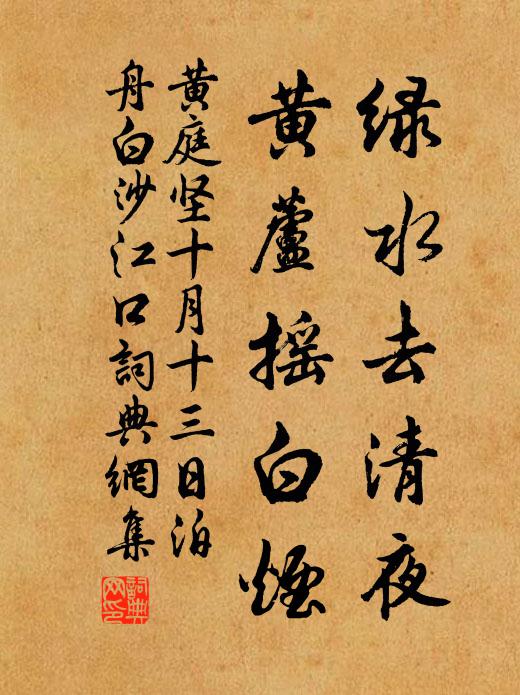 绿水去清夜
黄蘆摇白煙
黄庭坚十月十三日泊
舟白沙江口詞典網集
詞典
网印